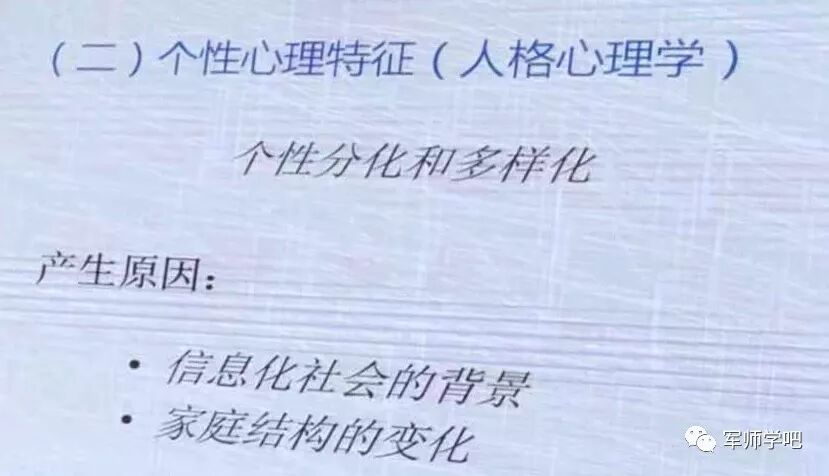 （二）个性心理特征（人格心理学）
个性分化和多样化
产生原因：
• 信息化社会的背景
• 家庭结构的变化
军师学吧